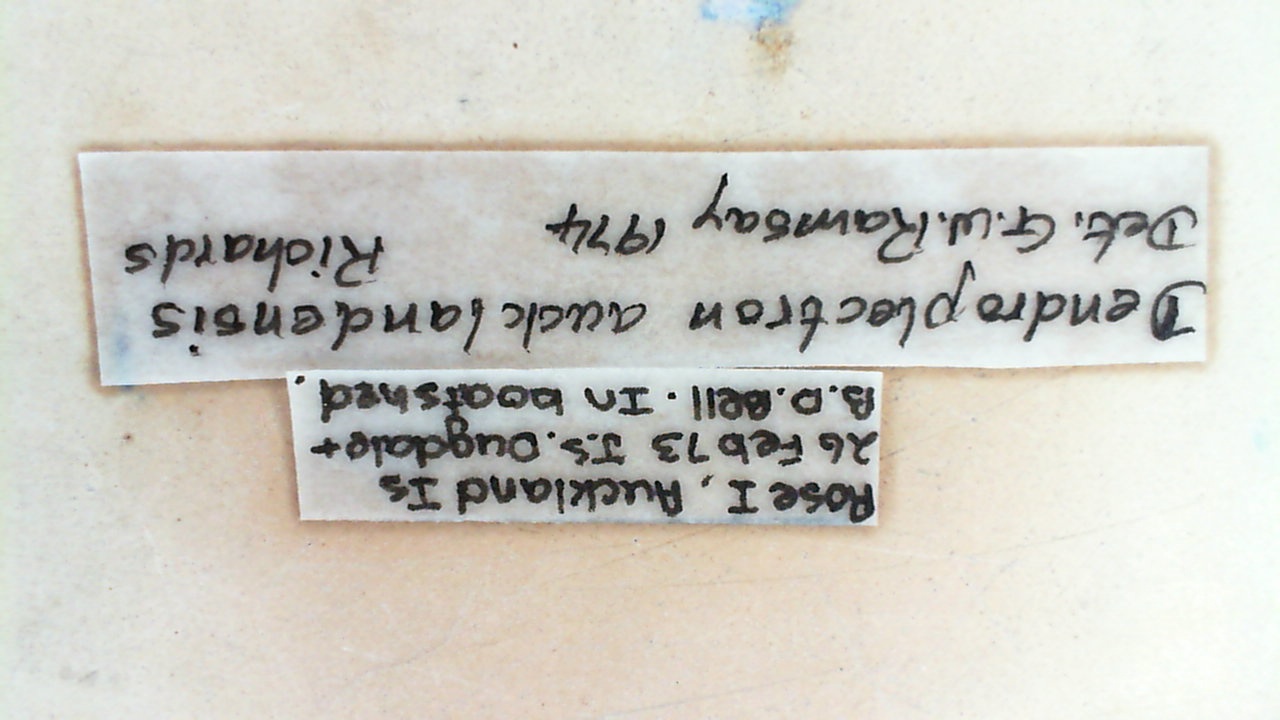 Rose I, Auckland Is
26 Feb 73 J.S. Dugdale +
B.D. Bell. In boatshed.
Dendroplectron aucklandensis
Richards
Det. G.W. Ramsay 1974